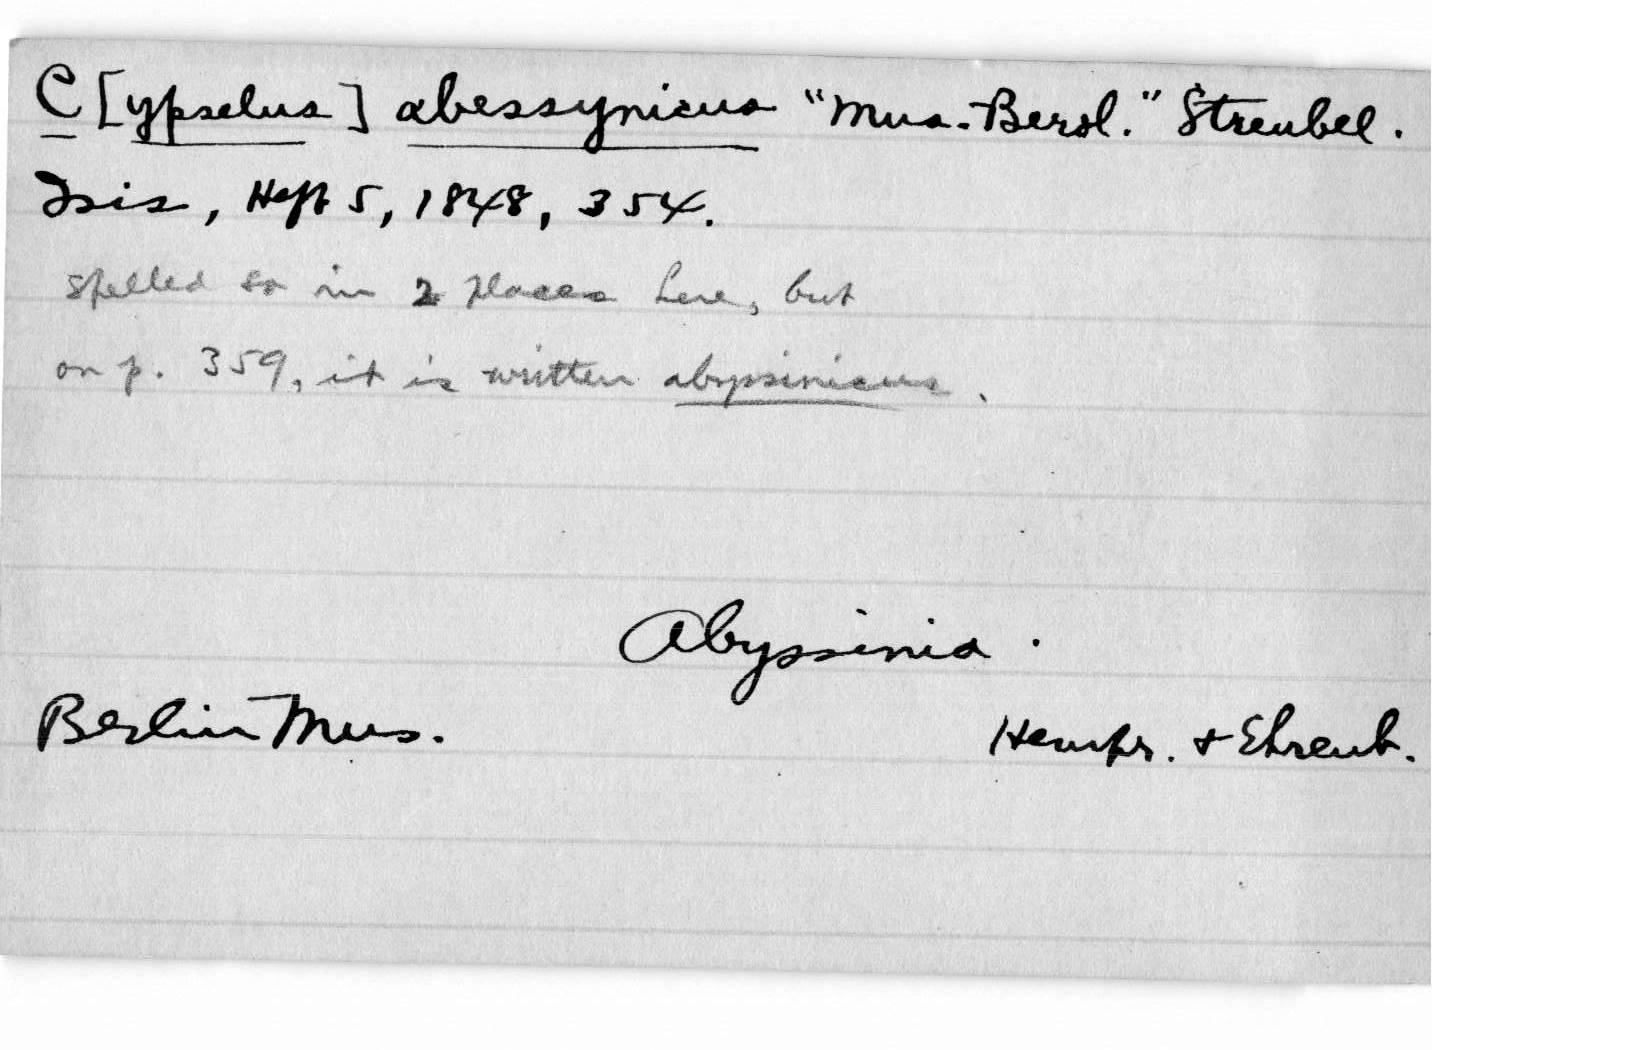 C[ypselus] abessynicus "Mus. Berol." Streubel.
Isis, Heft 5, 1848, 354.
spelled so in 2 places here, but
on p. 359, it is written abyssinicus.
Abyssinia.
Berlin Mus.
Hempr. & Ehrenb.